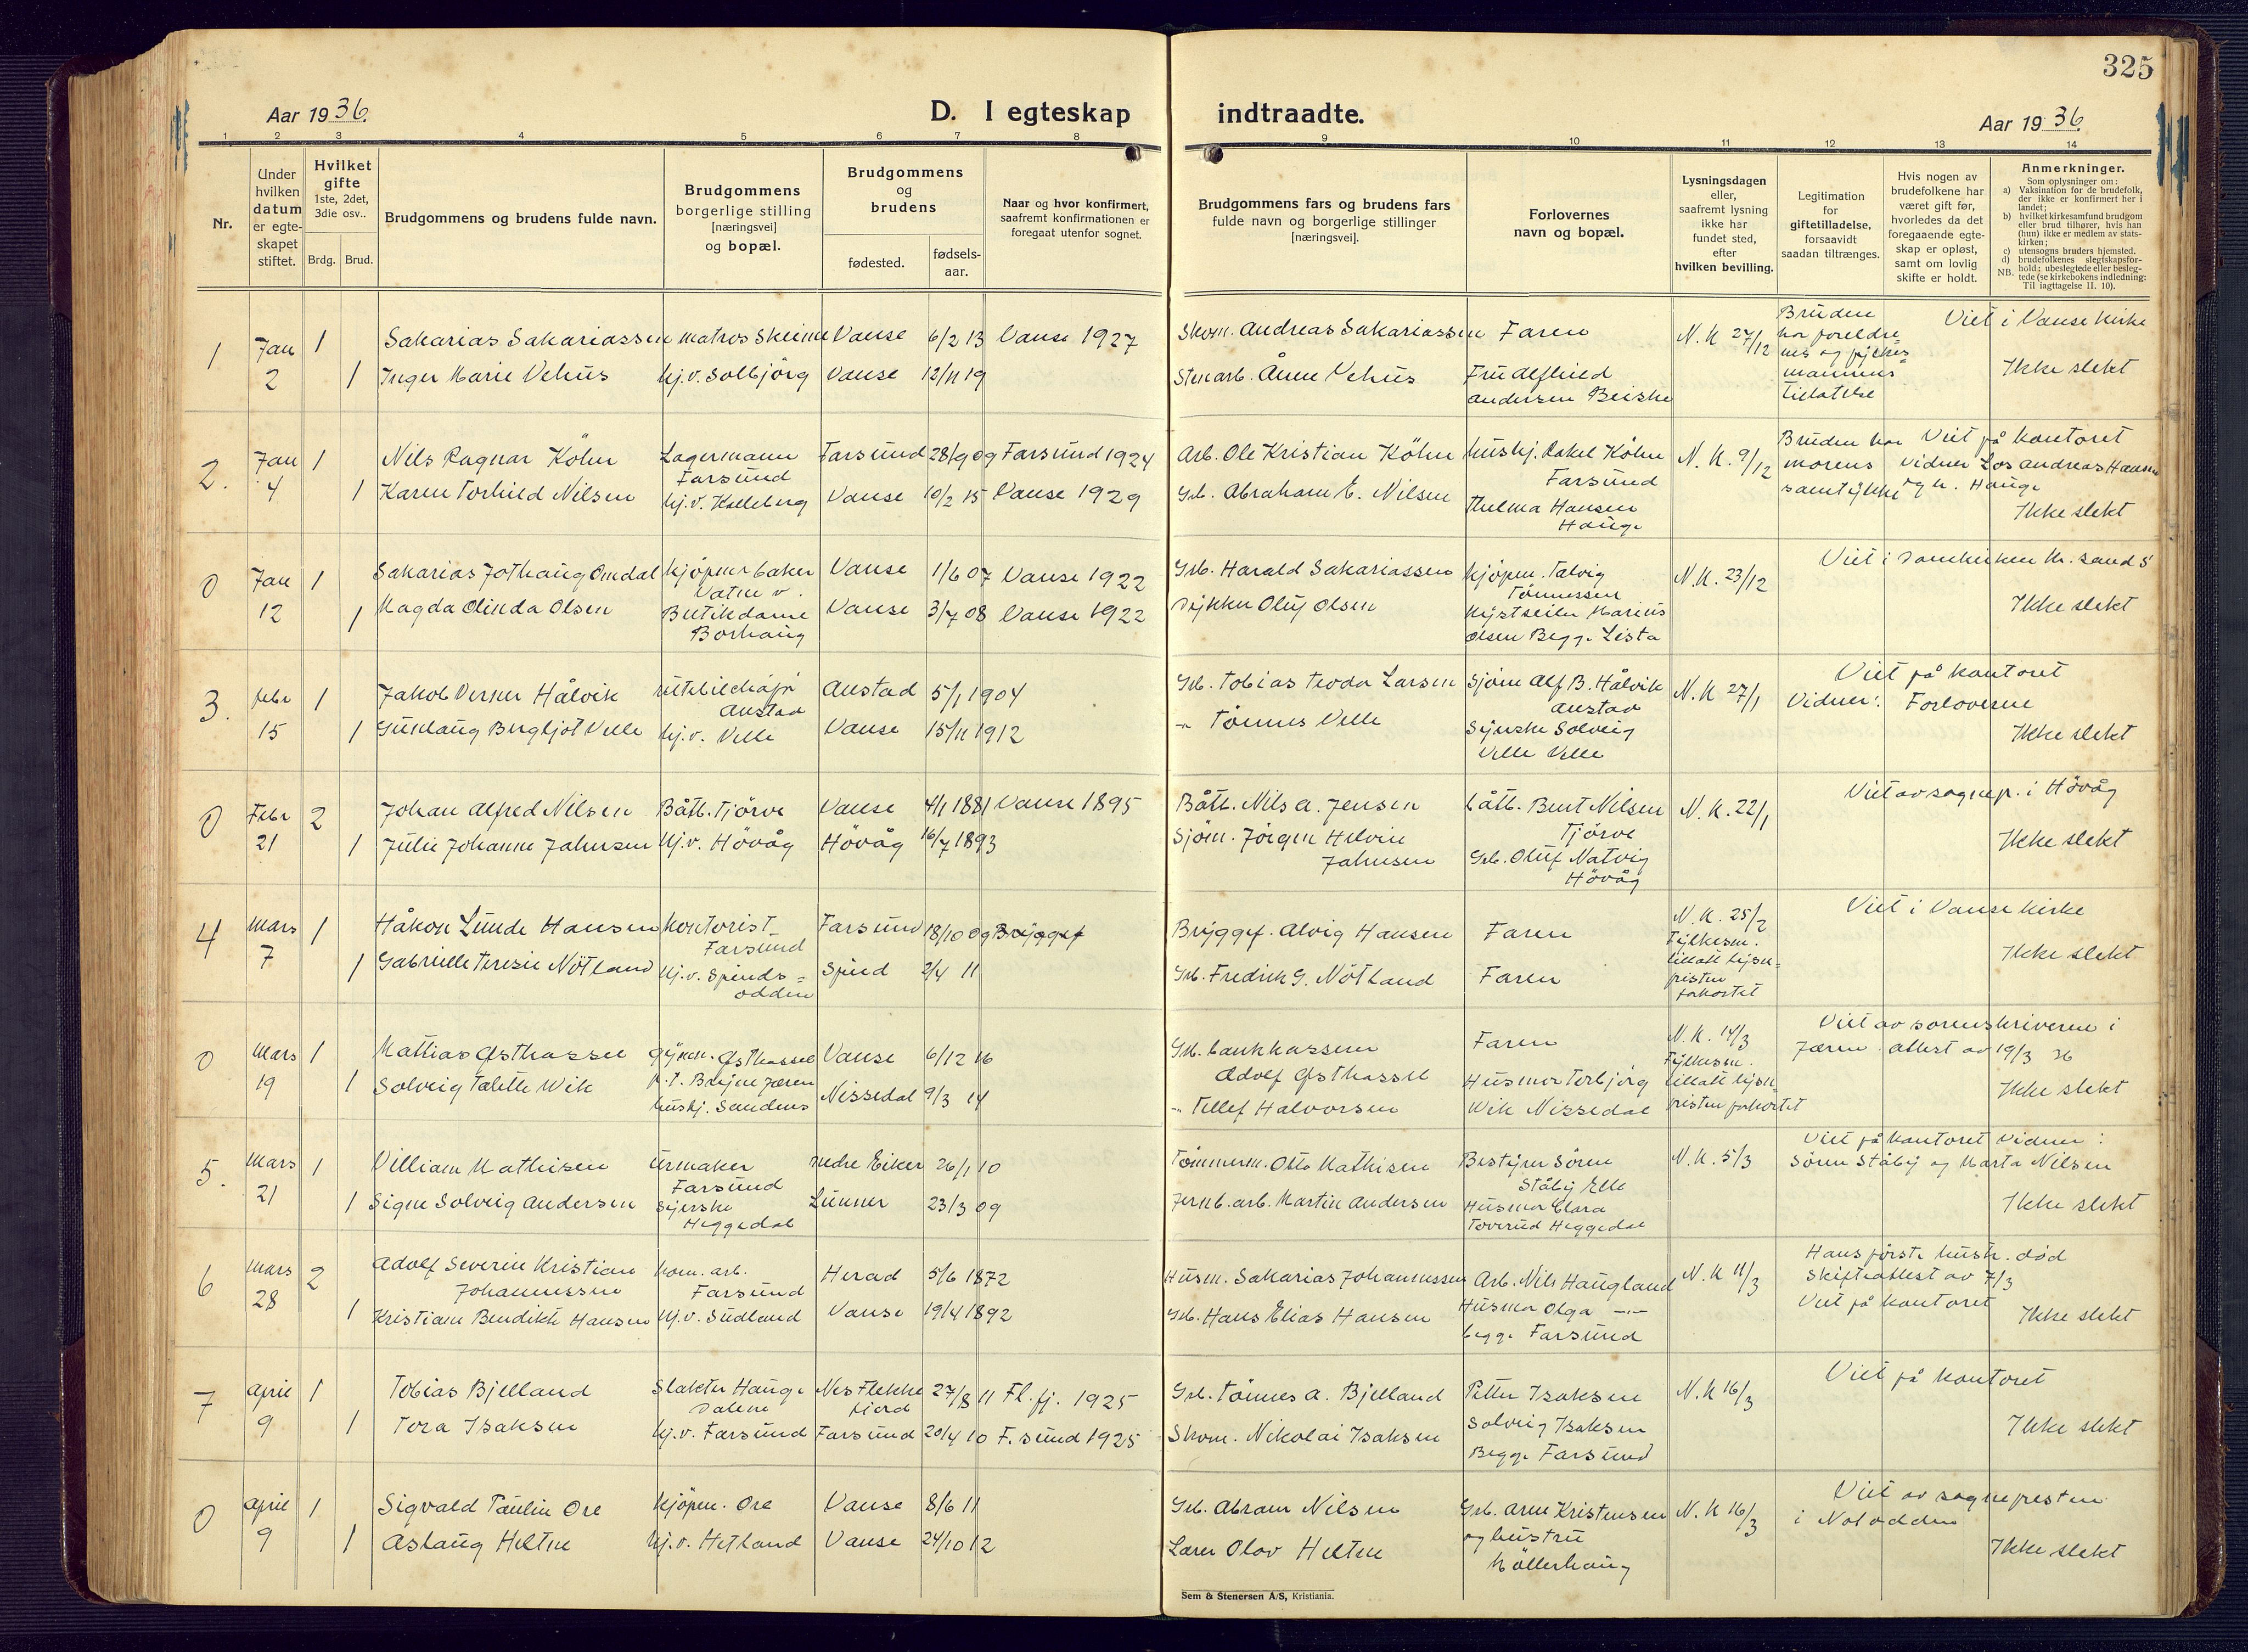 325
Aar 1936.
D. I egteskap indtraadte.
Aar 1936.
1 2 3 4 5 6 7 8 9 10 11 12 13 14
Nr.
Under hvilken datum er egte-skapet stiftet.
Hvilket gifte
1ste, 2det, 3die osv..
Brdg. Brud.
Brudgommens og brudens fulde navn.
Brudgommens borgerlige stilling [næringsvei] og bopæl.
Brudgommens og brudens
fødested.
fødsels-aar.
Naar og hvor konfirmert, saafremt konfirmationen er foregaat utenfor sognet.
Brudgommens fars og brudens fars fulde navn og borgerlige stillinger [næringsvei].
Forlovernes navn og bopæl.
Lysningsdagen eller, saafremt lysning ikke har fundet sted, efter hvilken bevilling.
Legitimation for giftetilladelse, forsaavidt saadan tiltrænges.
Hvis nogen av brudefolkene har været gift før, hvorledes da det foregaaende egte-skap er opløst, samt om lovlig skifte er holdt.
Anmerkninger.
Som oplysninger om:
a) Vaksination for de brudefolk, der ikke er konfirmert her i landet;
b) hvilket kirkesamfund brudgom eller brud tilhører, hvis han (hun) ikke er medlem av stats-kirken;
c) utensogns bruders hjemsted.
d) brudefolkenes slegtskapsfor-hold; ubeslegtede eller besleg-tede (se kirkebokens indledning:
NB. Til iagttagelse II. 10).
1 Jan 2 1 Sakarias Sakariassen matros Skeime Vanse 6/2 13 Vanse 1927 Skom. Andreas Sakariassen Faren N.K 27/12 Bruden har foreldre-nes og fylkes-mannens tillatelse Viet i Vanse kirke
1 Inger Marie Vehus hj.v. Solbjörg Vanse 12/11 19 Stenarb. Ånen Vehus Fru Alfhild Andersen Beiske Ikke slekt
2. Jan 4 1 Nils Ragnar Köhn Lagermann Farsund Farsund 28/9 09 Farsund 1924 Arb. Ole Kristian Köhn huskj. Rakel Köhn Farsund N.K. 9/12 Bruden har morens samtykke Viet på kontoret vidner Los Andreas Hansen og h. Hauge
1 Karen Torhild Nilsen hj.v. Kalleberg Vanse 10/2 15 Vanse 1929 Grb. Abraham E. Nilsen Thelma Hansen Hauge Ikke slekt
0 Jan 12 1 Sakarias Jothaug Omdal kjöpm. baker Vatne v. Vanse 1/6 07 Vanse 1922 Grb. Harald Sakariassen kjöpm. Talvig Tönnessen N.K. 23/12 Viet i domkirken Kr. sand S
1 Magda Olinda Olsen Butikdame Borhaug Vanse 3/7 08 Vanse 1922 Dykker Oluf Olsen Kystseiler Marius Olsen Begge Lista Ikke slekt
3. febr 15 1 Jakob Verner Hålvik rutebilchåff Austad Austad 5/1 1904 Grb. Tobias Teodor Larsen Sjöm Alf B. Hålvik Austad N.K 27/1 Viet på kontoret Vidner: Forloverne
1 Gunlaug Bergljot Velle hj.v. Velle Vanse 15/11 1912 -"- Tönnes Velle Syerske Solveig Velle Velle Ikke slekt
0 Febr 21 2 Johan Alfred Nilsen Båtb. Tjörve Vanse 4/1 1881 Vanse 1895 Båtb. Nils A. Jensen båtb. Bernt Nilsen Tjörve N.K. 22/1 Viet av sognep. i Hövåg
1 Julie Johanne Jahnsen hj.v. Hövåg Hövåg 16/7 1893 Sjöm. Jörgen Helvin Jahnsen Grb. Oluf Natvig Hövåg Ikke slekt
4 Mars 7 1 Håkon Lunde Hansen kontorist Farsund Farsund 18/10 09 Bryggef. Alvig Hansen Faren N.K. 25/2 Fylkesm. tillatt lysn-fristen forkortet Viet i Vanse kirke
1 Gabrielle Teresie Nötland hj.v. Spinds-odden Spind 2/4 11 Grb. Fredrik G. Nötland Faren Ikke slekt
0 Mars 19 1 Mattias Østhassel gymn. Østhassel p.t. Bryne Jæren Vanse 6/12 16 Grb. bankkasserer Adolf Østhassel Faren N.K. 14/3 Fylkesm. tillatt lysn-fristen forkortet Viet av sorenskriveren i Jæren. attest av 19/3 36
1 Solveig Talette Wik huskj. Sandnes Nissedal 9/3 14 -"- Tellef Halvorsen Husmor Torbjörg Wik Nissedal Ikke slekt
5. Mars 21 1 Villiam Mathisen urmaker Farsund Nedre Eiker 26/1 10 Tömmerm. Otto Mathisen Bestyrer Sören Ståby Elle N.K. 5/3 Viet på kontoret Vidner: Sören Ståby og Marta Nilsen
1 Signe Solveig Andersen Syerske Heggedal Lunner 23/3 09 Jernb. arb. Martin Andersen Husmor Clara Toverud Heggedal Ikke slekt
6 Mars 28 2 Adolf Severin Kristian Johannessen kom. arb. Farsund Herad 5/6 1872 Husm. Sakarias Johannessen Arb. Nils Haugland N.K 11/3 Hans förste hustr. död Skifteattest av 7/3 Viet på kontoret
1 Kristiane Bendikte Hansen hj.v. Sudland Vanse 19/4 1892 Grb. Hans Elias Hansen Husmor Olga -"- begge Farsund Ikke slekt
7 April 9 1 Tobias Bjelland Slakter Hauge Dalene Nes Flekke fjord 27/8 11 Fl.fj. 1925 Grb. Tönnes A. Bjelland Petter Isaksen N.K 16/3 Viet på kontoret
1 Tora Isaksen hj.v. Farsund Farsund 20/4 10 F.sund 1925 Skom. Nikolai Isaksen Solveig Isaksen Begge Farsund Ikke slekt
0 April 9 1 Sigvald Paulin Ore kjöpm. Ore Vanse 8/6 11 Grb. Abram Nilsen Grb. Arne Kristensen og hustru Möllerhaug N.K 16/3 Viet av sognepresten i Notodden
1 Aslaug Heltne hj.v. Hetland Vanse 24/10 12 Lærer Olav Heltne Ikke slekt
Sem & Stenersen A/S, Kristiania.